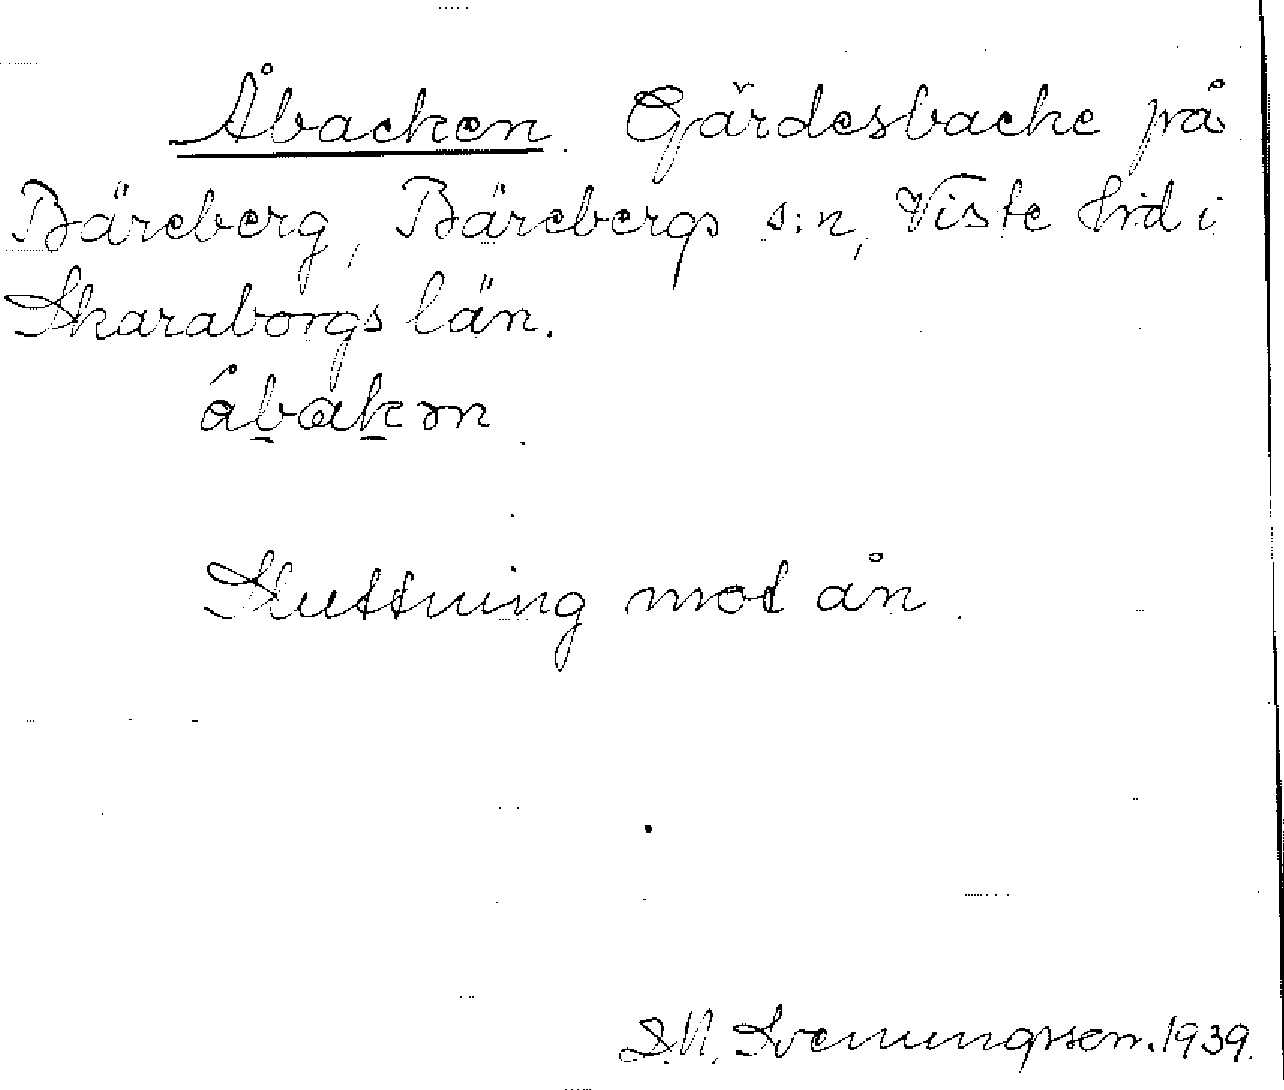 Åbacken. Gärdesbacke på
Bäreberg, Bärebergs s:n, Viste hrd i
Skaraborgs län.
åbakən
Sluttning mot ån.
S.N. Svenungsson. 1939.